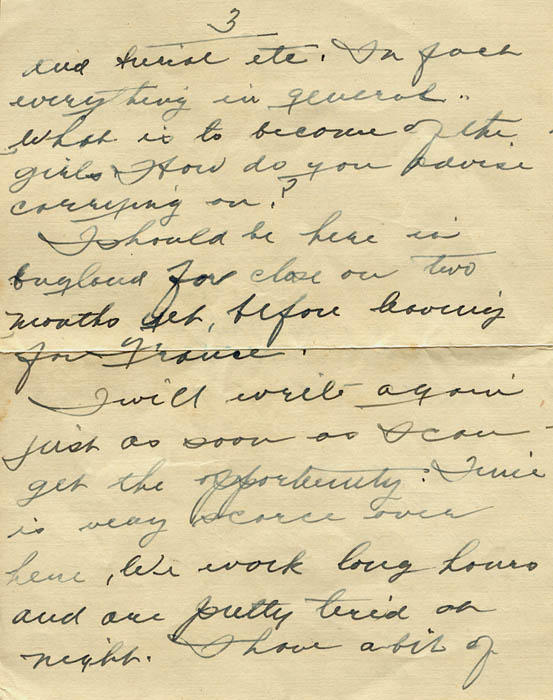 3
and burial etc. In fact
everything in general.
What is to become of the
girls. How do you advise
carrying on.?
I should be here in
England for close on two
months yet, before leaving
for France.
I will write again
just as soon as I can
get the opportunity. Time
is very scarce over
here, We work long hours
and are pretty tierd at
night. I have a bit of